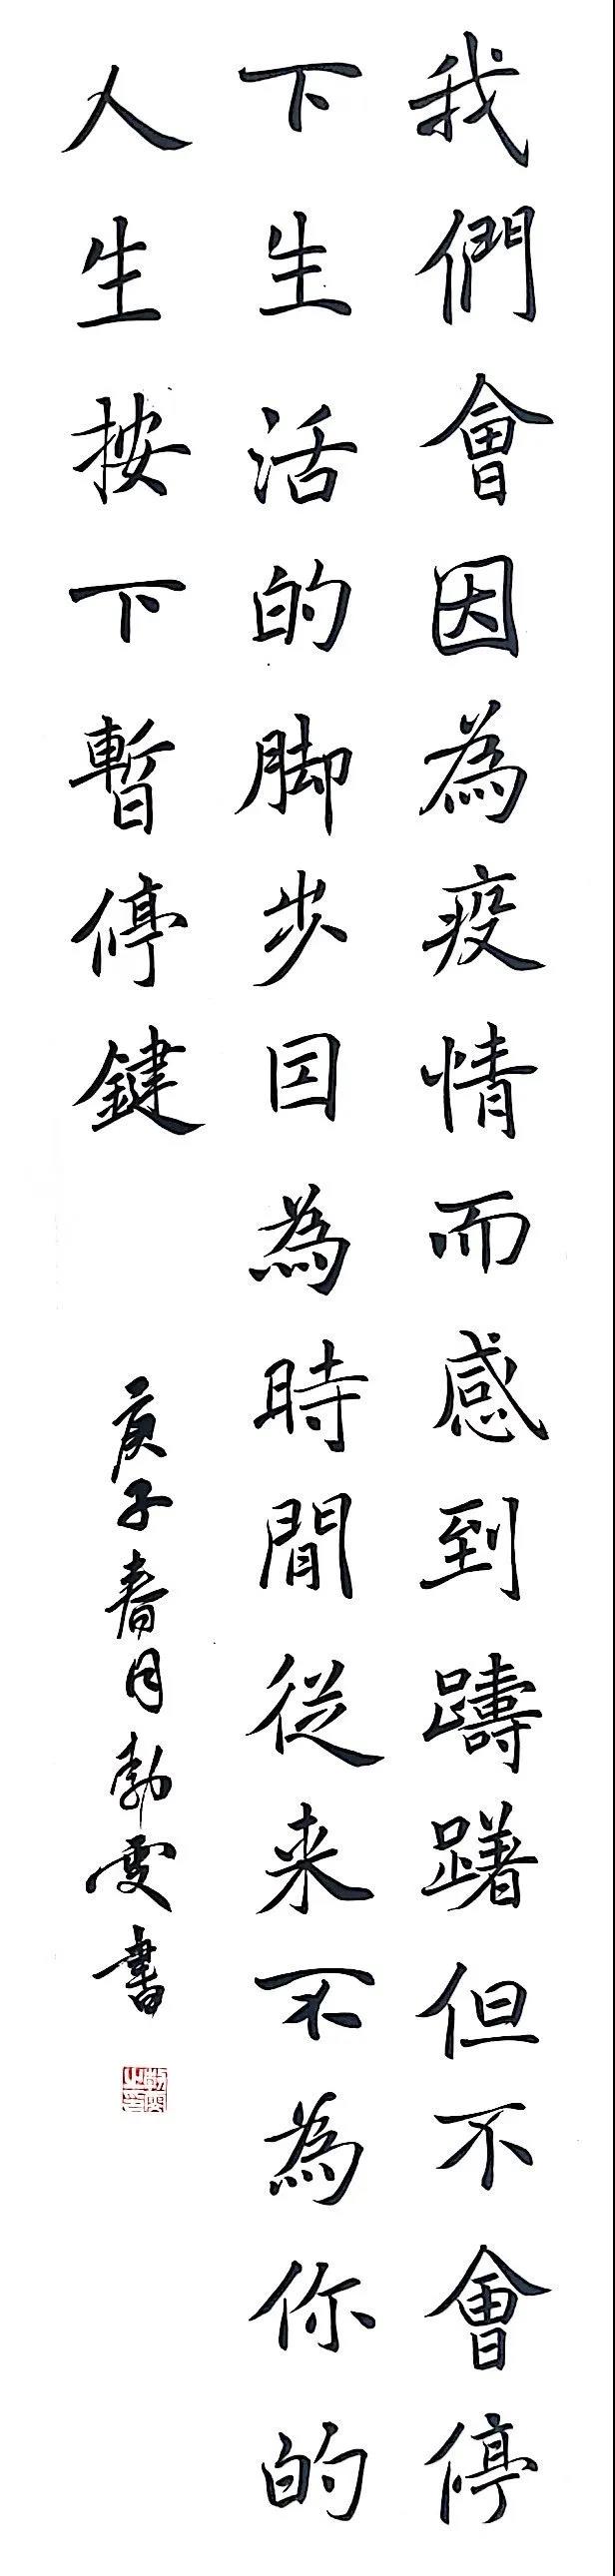 我們會因為疫情而感到躊躇但不會停
下生活的脚步因為時間從来不為你的
人生按下暫停鍵
庚子春月勃雯書